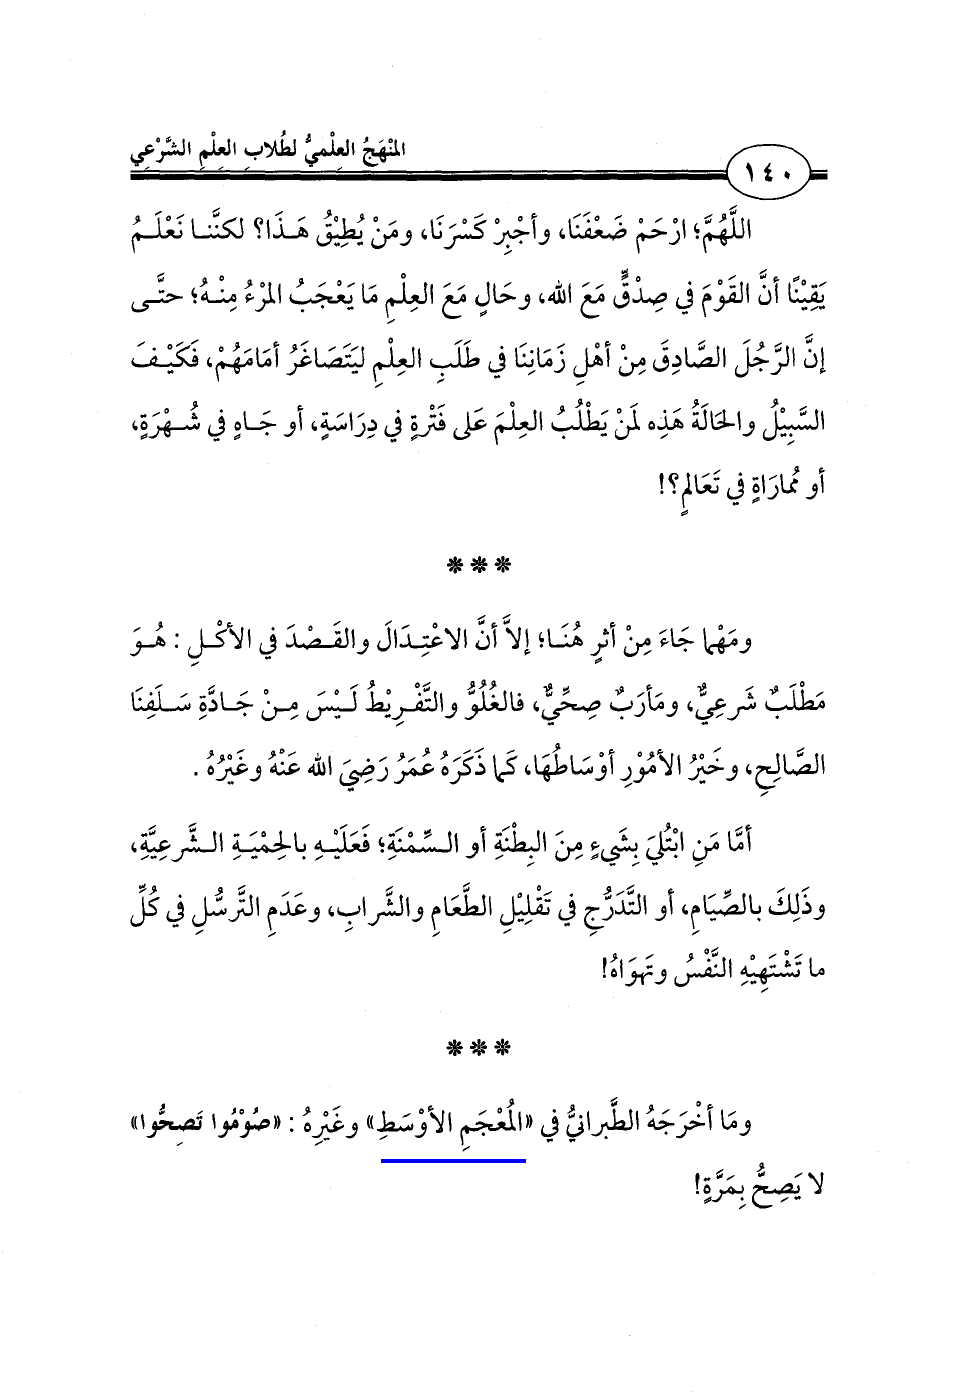 المَنْهَجُ العِلْميُّ لطُلابِ العِلْمِ الشَّرْعِي
١٤٠
اللَّهُمَّ؛ ارْحَمْ ضَعْفَنَا، وأجْبِرْ كَسْرَنَا، ومَنْ يُطِيْقُ هَذَا؟ لكنَّنا نَعْلَمُ
يَقِيْنًا أنَّ القَوْمَ في صِدْقٍّ مَعَ الله، وحَالٍ مَعَ العِلْمِ مَا يَعْجَبُ المَرْءُ مِنْهُ؛ حتَّى
إنَّ الرَّجُلَ الصَّادِقَ مِنْ أهْلِ زَمَانِنَا في طَلَبِ العِلْمِ ليَتَصَاغَرُ أمَامَهُمْ، فَكَيْفَ
السَّبِيْلُ والحَالَةُ هَذِه لمَنْ يَطْلُبُ العِلْمَ عَلى فَتْرَةٍ في دِرَاسَةٍ، أو جَاهٍ في شُهْرَةٍ،
أو مُمارَاةٍ في تَعَالمٍ؟!
***
ومَهْما جَاءَ مِنْ أثرٍ هُنَا؛ إلاَّ أنَّ الاعْتِدَالَ والقَصْدَ في الأكْلِ : هُوَ
مَطْلَبٌ شَرعِيٌّ، ومَأرَبٌ صِحِّيٌّ، فالغُلُوُّ والتَّفْرِيْطُ لَيْسَ مِنْ جَادَّةِ سَلَفِنَا
الصَّالِحِ، وخَيْرُ الأمُوْرِ أوْسَاطُهَا، كَما ذَكَرَهُ عُمَرُ رَضِيَ الله عَنْهُ وغَيْرُهُ .
أمَّا مَنِ ابْتُلِيَ بِشَيءٍ مِنَ البِطْنَةِ أو السِّمْنَةِ؛ فَعَلَيْهِ بالحِمْيَةِ الشَّرعِيَّةِ،
وذَلِكَ بالصِّيَامِ، أو التَّدَرُّجِ في تَقْلِيْلِ الطَّعَامِ والشَّرابِ، وعَدَمِ التَّرسُّلِ في كُلِّ
ما تَشْتَهِيْهِ النَّفْسُ وتَهوَاهُ!
***
ومَا أخْرَجَهُ الطَّبرانيُّ في «المُعْجَمِ الأوْسَطِ» وغَيْرِهُ : «صُوْمُوا تَصِحُّوا»
لا يَصِحُّ بِمَرَّةٍ!